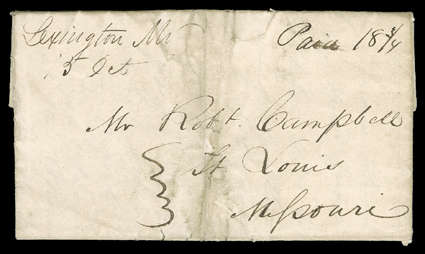 Lexington Mo Paid 18 3/4
15 Oct
Mr Robt. Campbell
St Louis
Missouri